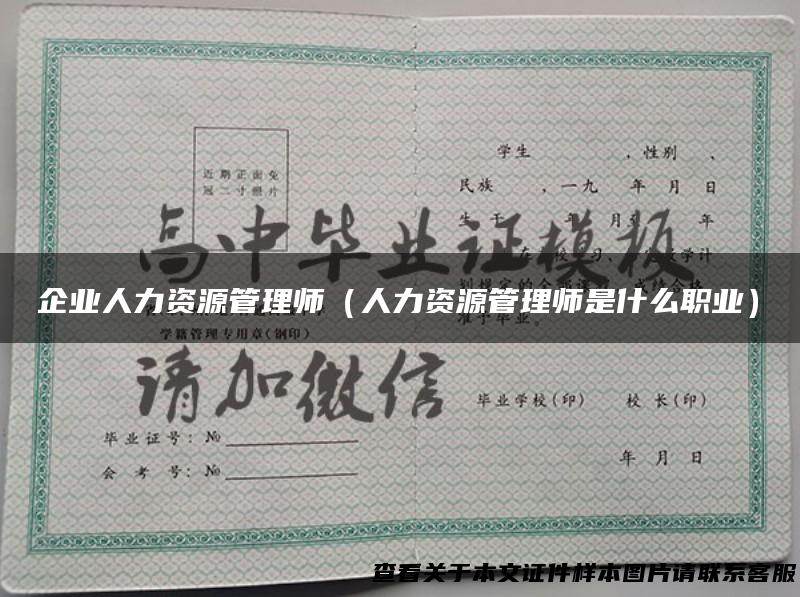 近期正面免
冠二寸照片
学籍管理专用章(钢印)
毕业证号：№
会考号：№
学生 ，性别 、
民族 ，一九 年 月 日
年 月至 年
准予毕业。
毕业学校(印) 校长(印)
年 月 日
高中毕业证模板
请加微信
企业人力资源管理师（人力资源管理师是什么职业）
查看关于本文证件样本图片请联系客服